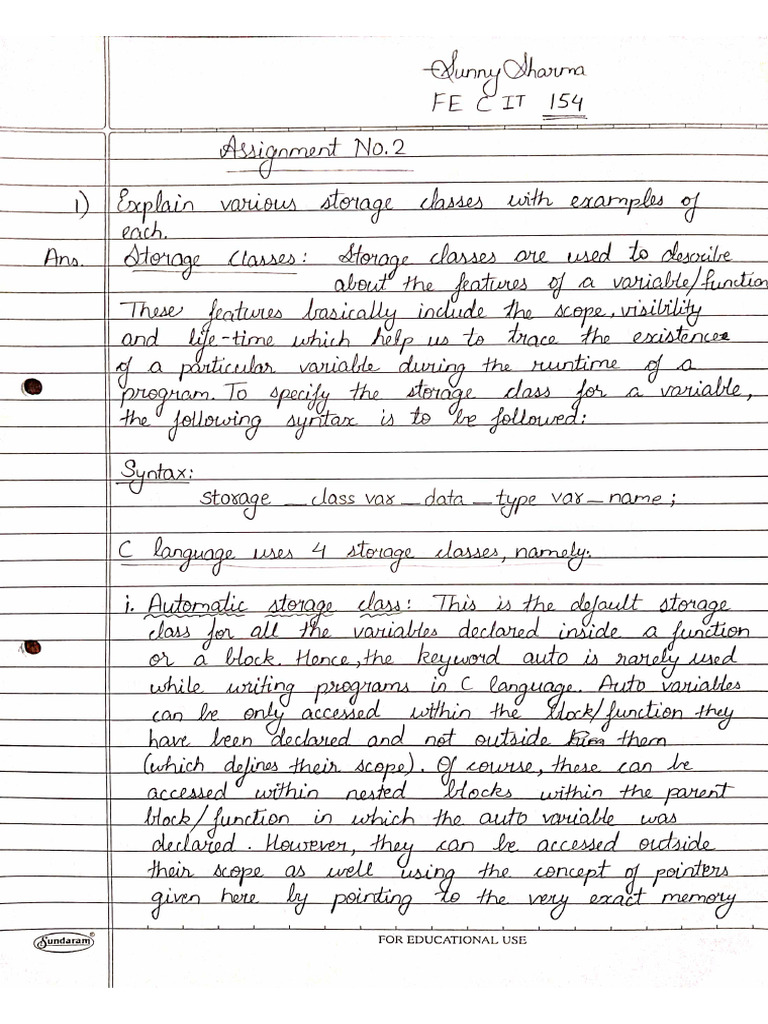 Sunny Sharma
FE C IT 154
Assignment No.2
1) Explain various storage classes with examples of
each.
Ans. Storage Classes: Storage classes are used to describe
about the features of a variable/function
These features basically include the scope, visibility
and life-time which help us to trace the existence
of a particular variable during the runtime of a
program. To specify the storage class for a variable,
the following syntax is to be followed:
Syntax:
storage _ class var _ data _ type var _ name ;
C language uses 4 storage classes, namely:
i. Automatic storage class: This is the default storage
class for all the variables declared inside a function
or a block. Hence, the keyword auto is rarely used
while writing programs in C language. Auto variables
can be only accessed within the block/function they
have been declared and not outside them
(which defines their scope). Of course, these can be
accessed within nested blocks within the parent
block/function in which the auto variable was
declared. However, they can be accessed outside
their scope as well using the concept of pointers
given here by pointing to the very exact memory
Sundaram®
FOR EDUCATIONAL USE